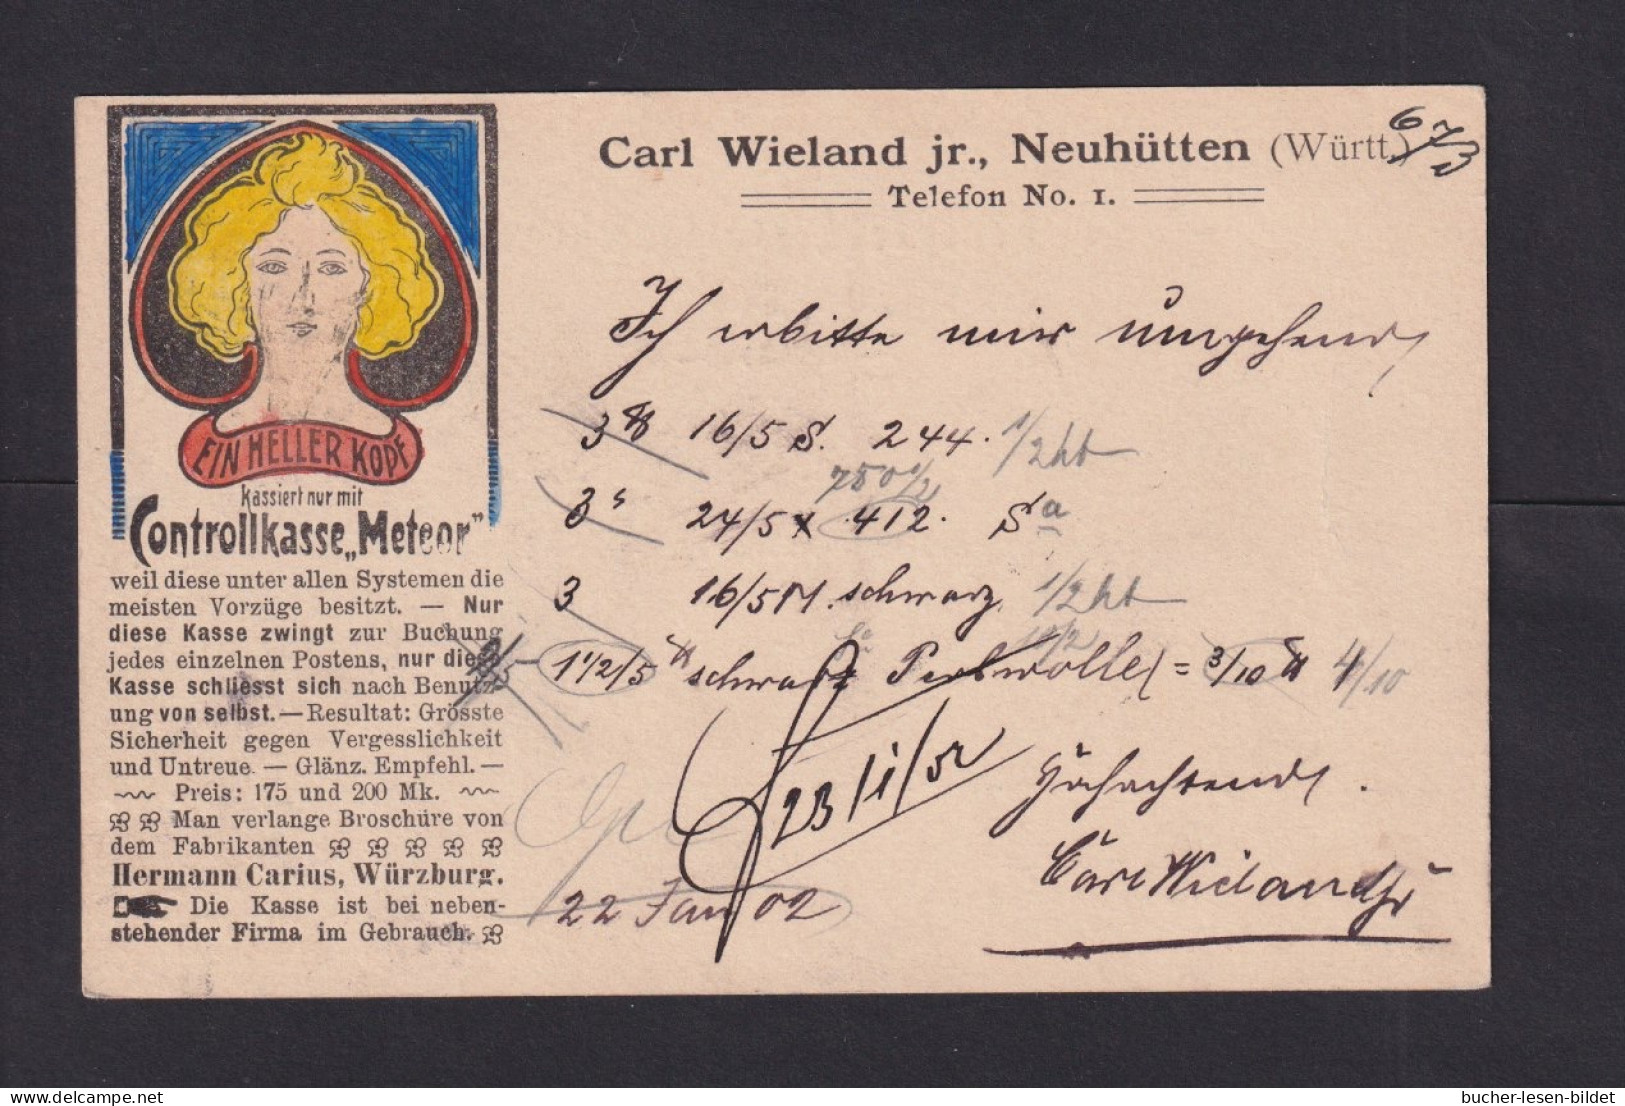 EIN HELLER KOPF
kassiert nur mit
Controllkasse „Meteor"
weil diese unter allen Systemen die
meisten Vorzüge besitzt. — Nur
diese Kasse zwingt zur Buchung
jedes einzelnen Postens, nur diese
Kasse schliesst sich nach Benutz-
ung von selbst. — Resultat: Grösste
Sicherheit gegen Vergesslichkeit
und Untreue. — Glänz. Empfehl. —
Preis: 175 und 200 Mk.
Man verlange Broschüre von
dem Fabrikanten
Hermann Carius, Würzburg.
Die Kasse ist bei neben-
stehender Firma im Gebrauch.
Carl Wieland jr., Neuhütten (Württ.)
Telefon No. 1.
Ich erbitte mir umgehend
3 16/5 S. 244. 1/2
750
3 24/5 x 412. Sa
3 16/5 M. schwarz 1/2
1 1/2/5 schwarz Perlwolle = 3/10 4/10
23/1/02
Hochachtend.
Carl Wieland jr
22 Jan 02
bucher-lesen-bildet